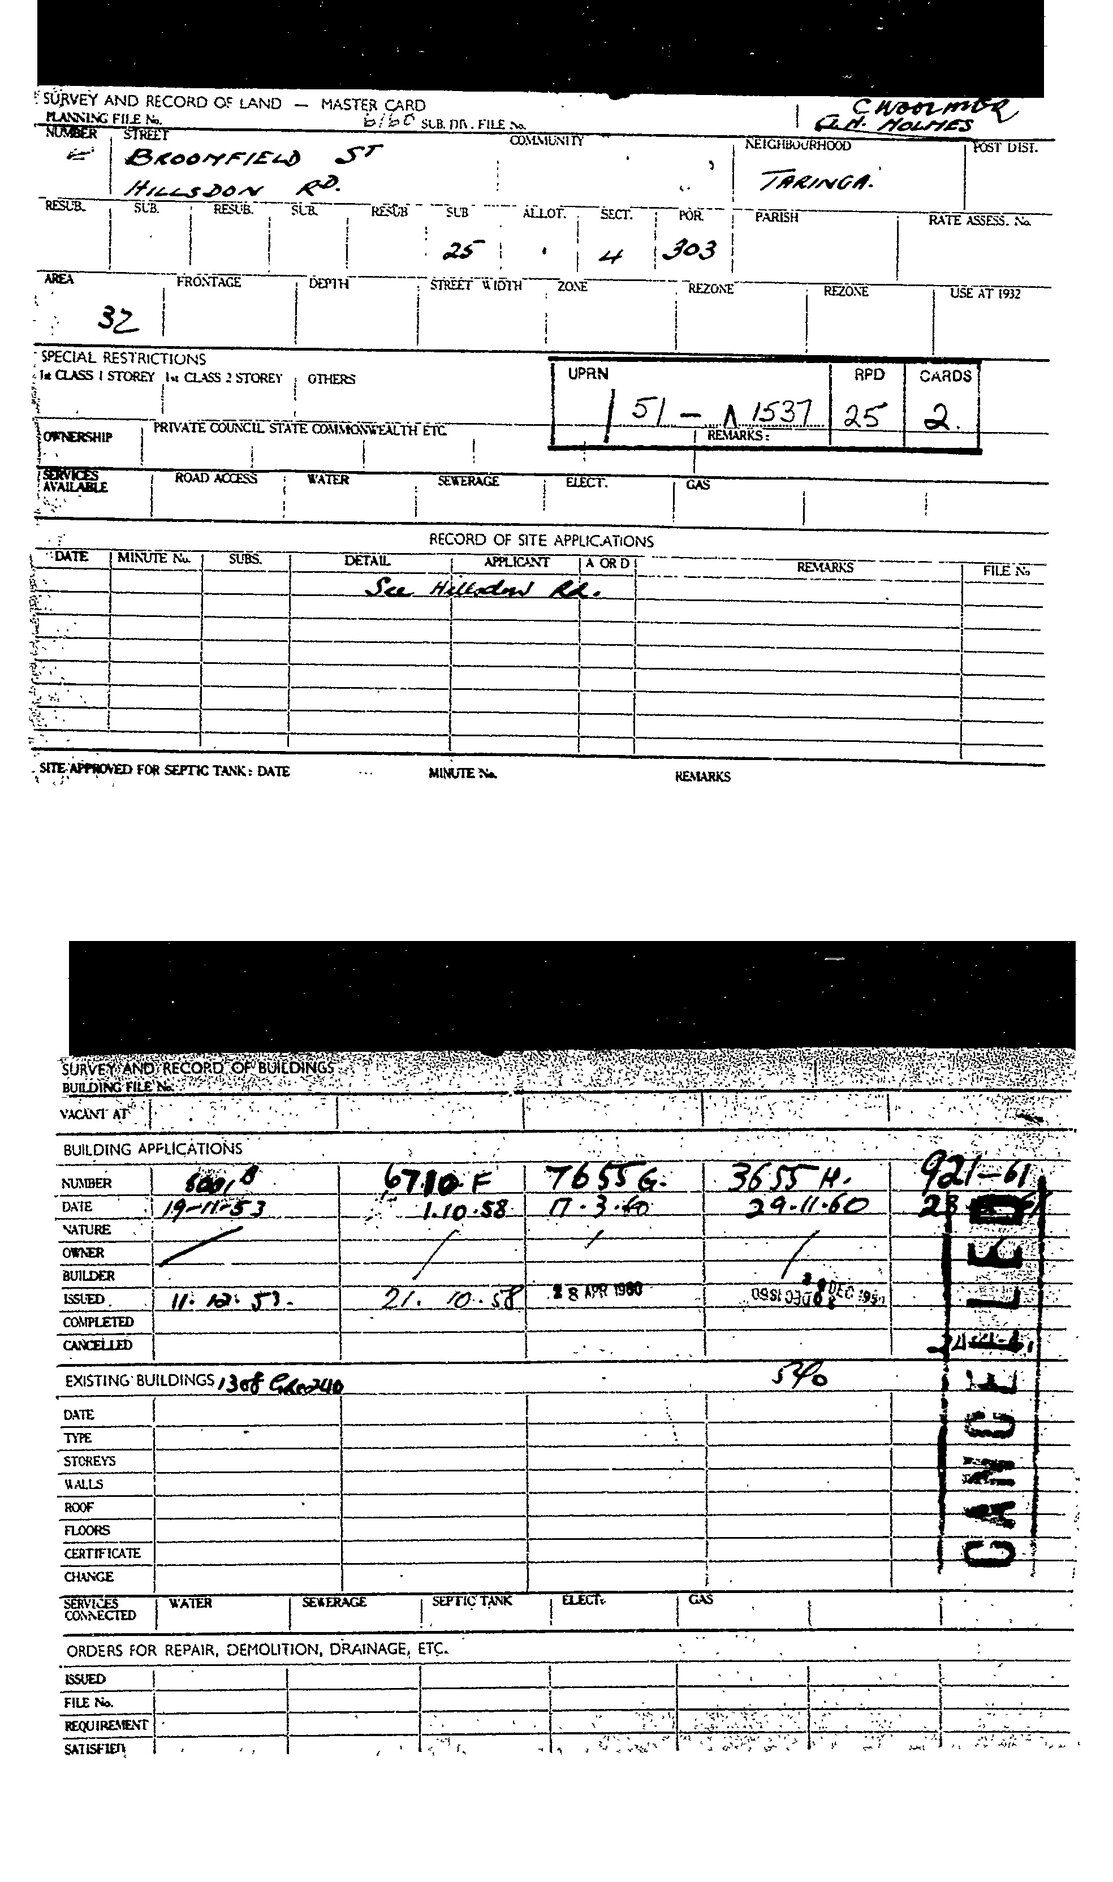 SURVEY AND RECORD OF LAND — MASTER CARD
C WOOLMER
PLANNING FILE No. 6160 SUB. DIV. FILE No. HOLMES
NUMBER STREET COMMUNITY NEIGHBOURHOOD POST DIST.
E BROOMFIELD ST
HILLSDON RD. TARINGA.
RESUB. SUB. RESUB. SUB. RESUB SUB ALLOT. SECT. POR. PARISH RATE ASSESS. No.
25 4 303
AREA FRONTAGE DEPTH STREET WIDTH ZONE REZONE REZONE USE AT 1932
32
SPECIAL RESTRICTIONS
1st CLASS 1 STOREY 1st CLASS 2 STOREY OTHERS
UPRN RPD CARDS
/ 51 - Λ 1537 25 2.
OWNERSHIP PRIVATE COUNCIL STATE COMMONWEALTH ETC. REMARKS:
SERVICES AVAILABLE ROAD ACCESS WATER SEWERAGE ELECT. GAS
RECORD OF SITE APPLICATIONS
DATE MINUTE No. SUBS. DETAIL APPLICANT A OR D REMARKS FILE No
See Hillsdon Rd.
SITE APPROVED FOR SEPTIC TANK: DATE MINUTE No. REMARKS
SURVEY AND RECORD OF BUILDINGS
BUILDING FILE No.
VACANT AT
BUILDING APPLICATIONS
NUMBER 6710 F 7655 G. 3655 H. 921-61
DATE 19-11-53 1.10.58 17.3.60 29.11.60
NATURE
OWNER
BUILDER
ISSUED 11.12.53. 21.10.58 28 APR 1960
COMPLETED
CANCELLED
CANCELLED
EXISTING BUILDINGS
DATE
TYPE
STOREYS
WALLS
ROOF
FLOORS
CERTIFICATE
CHANGE
SERVICES CONNECTED WATER SEWERAGE SEPTIC TANK ELECT. GAS
ORDERS FOR REPAIR, DEMOLITION, DRAINAGE, ETC.
ISSUED
FILE No.
REQUIREMENT
SATISFIED